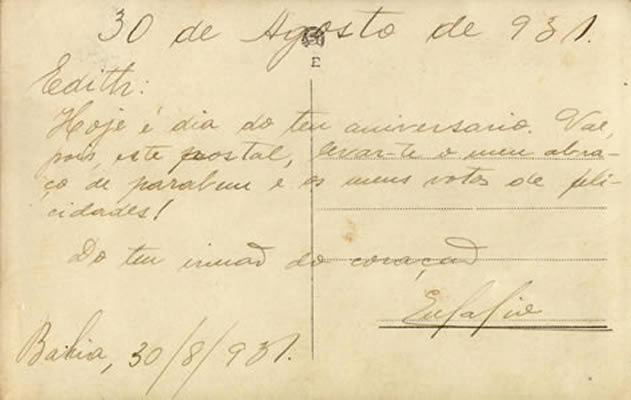 30 de Agosto de 931.
E
Edith:
Hoje é dia do teu aniversario. Vae,
pois, este postal, levar-te o meu abra-
ço de parabens e os meus votos de feli-
cidades!
Do teu irmão do coração
Eulalio
Bahia, 30/8/931.